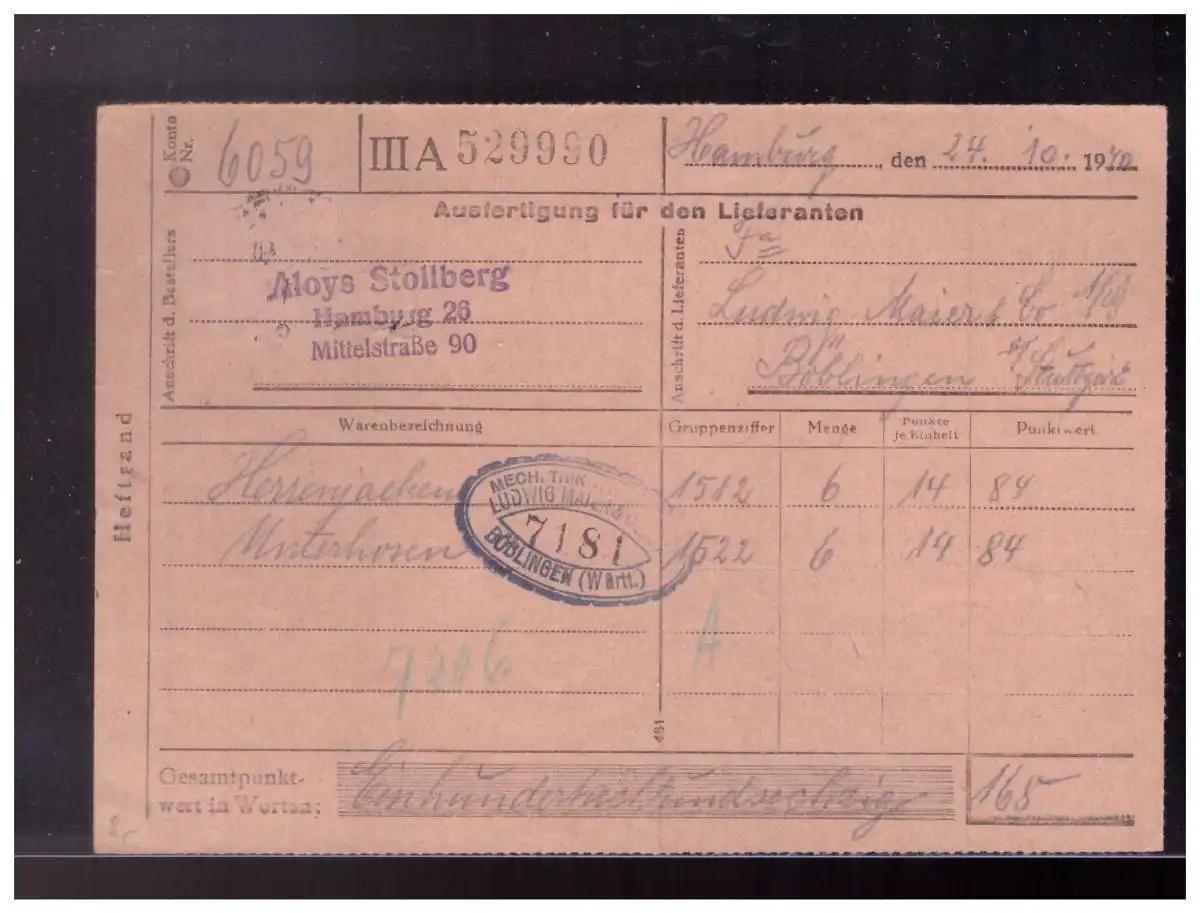 Konto Nr. 6059 III A 529990 Hamburg, den 24. 10. 1940
Ausfertigung für den Lieferanten
Anschrift d. Bestellers
Aloys Stollberg
Hamburg 26
Mittelstraße 90
Anschrift d. Lieferanten
Fa
Ludwig Maier & Co
Böblingen b/ Stuttgart
Heftrand
Warenbezeichnung Gruppenziffer Menge Punkte je Einheit Punktwert
Herrenjacken 1512 6 14 84
Unterhosen 1522 6 14 84
MECH. TRIK
LUDWIG MAIER & C
7181
BÖBLINGEN (Württ.)
7206 A
481
Gesamtpunkt-
wert in Worten: Einhundertachtundsechzig 168